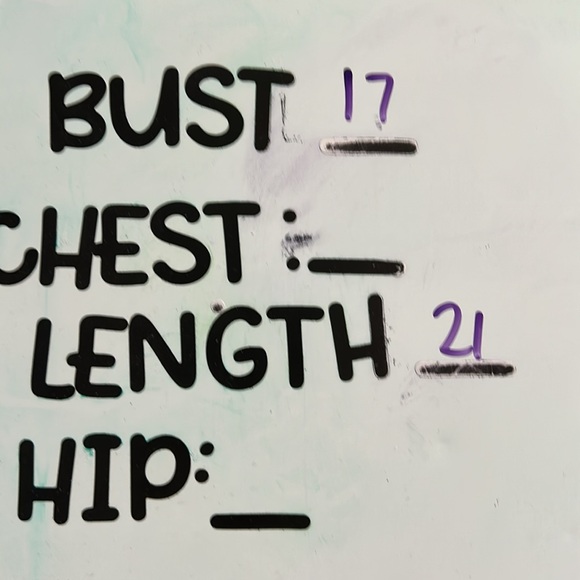 BUST 17
CHEST :_
LENGTH 21
HIP:_